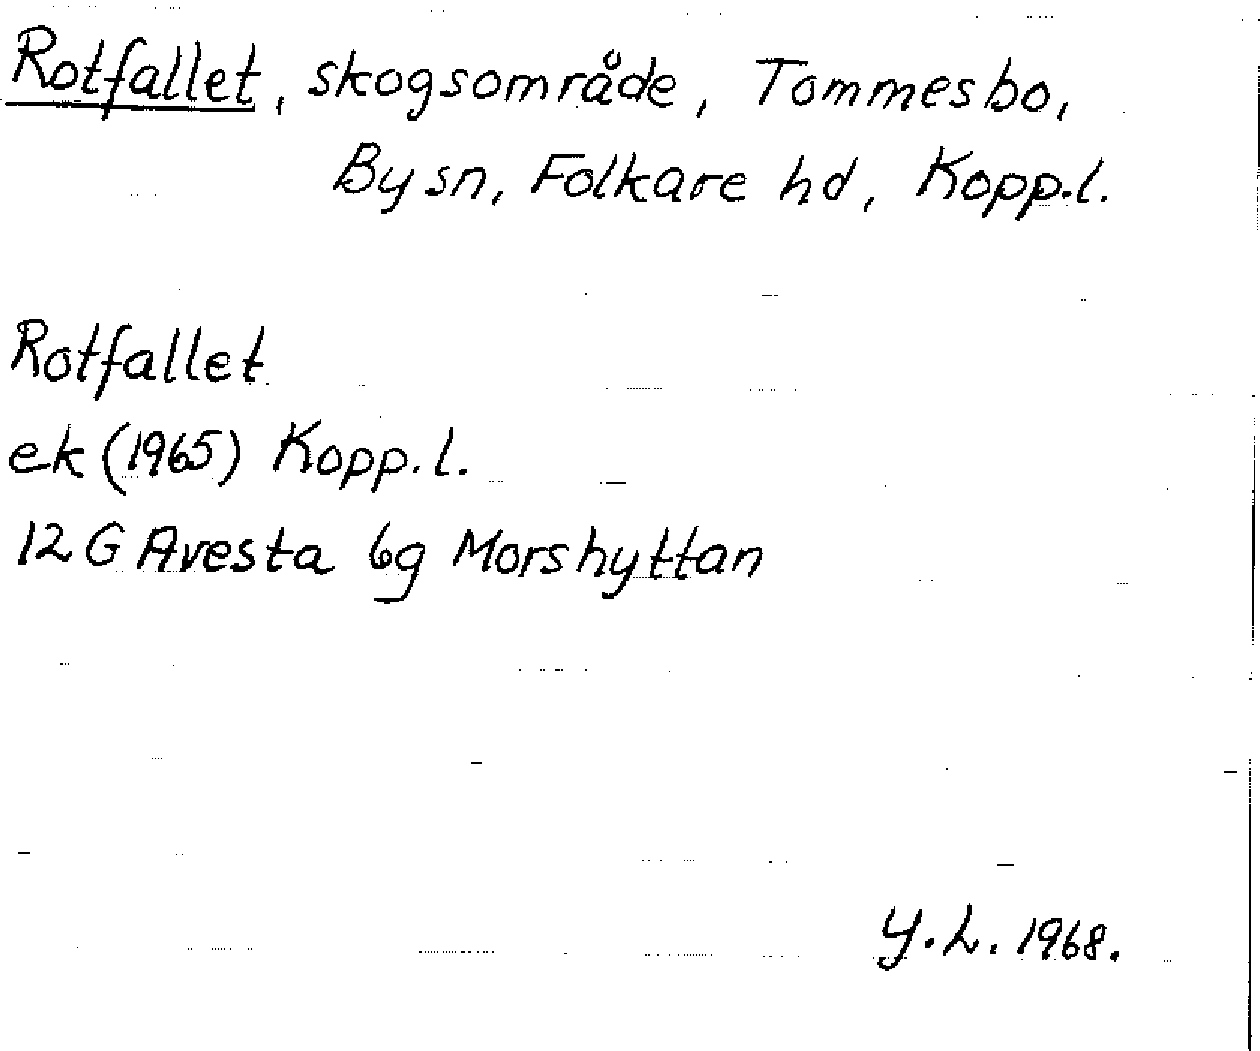 Rotfallet, skogsområde, Tommesbo,
By sn, Folkare hd, Kopp.l.
Rotfallet
ek (1965) Kopp.l.
12 G Avesta 6g Morshyttan
Y.L. 1968.